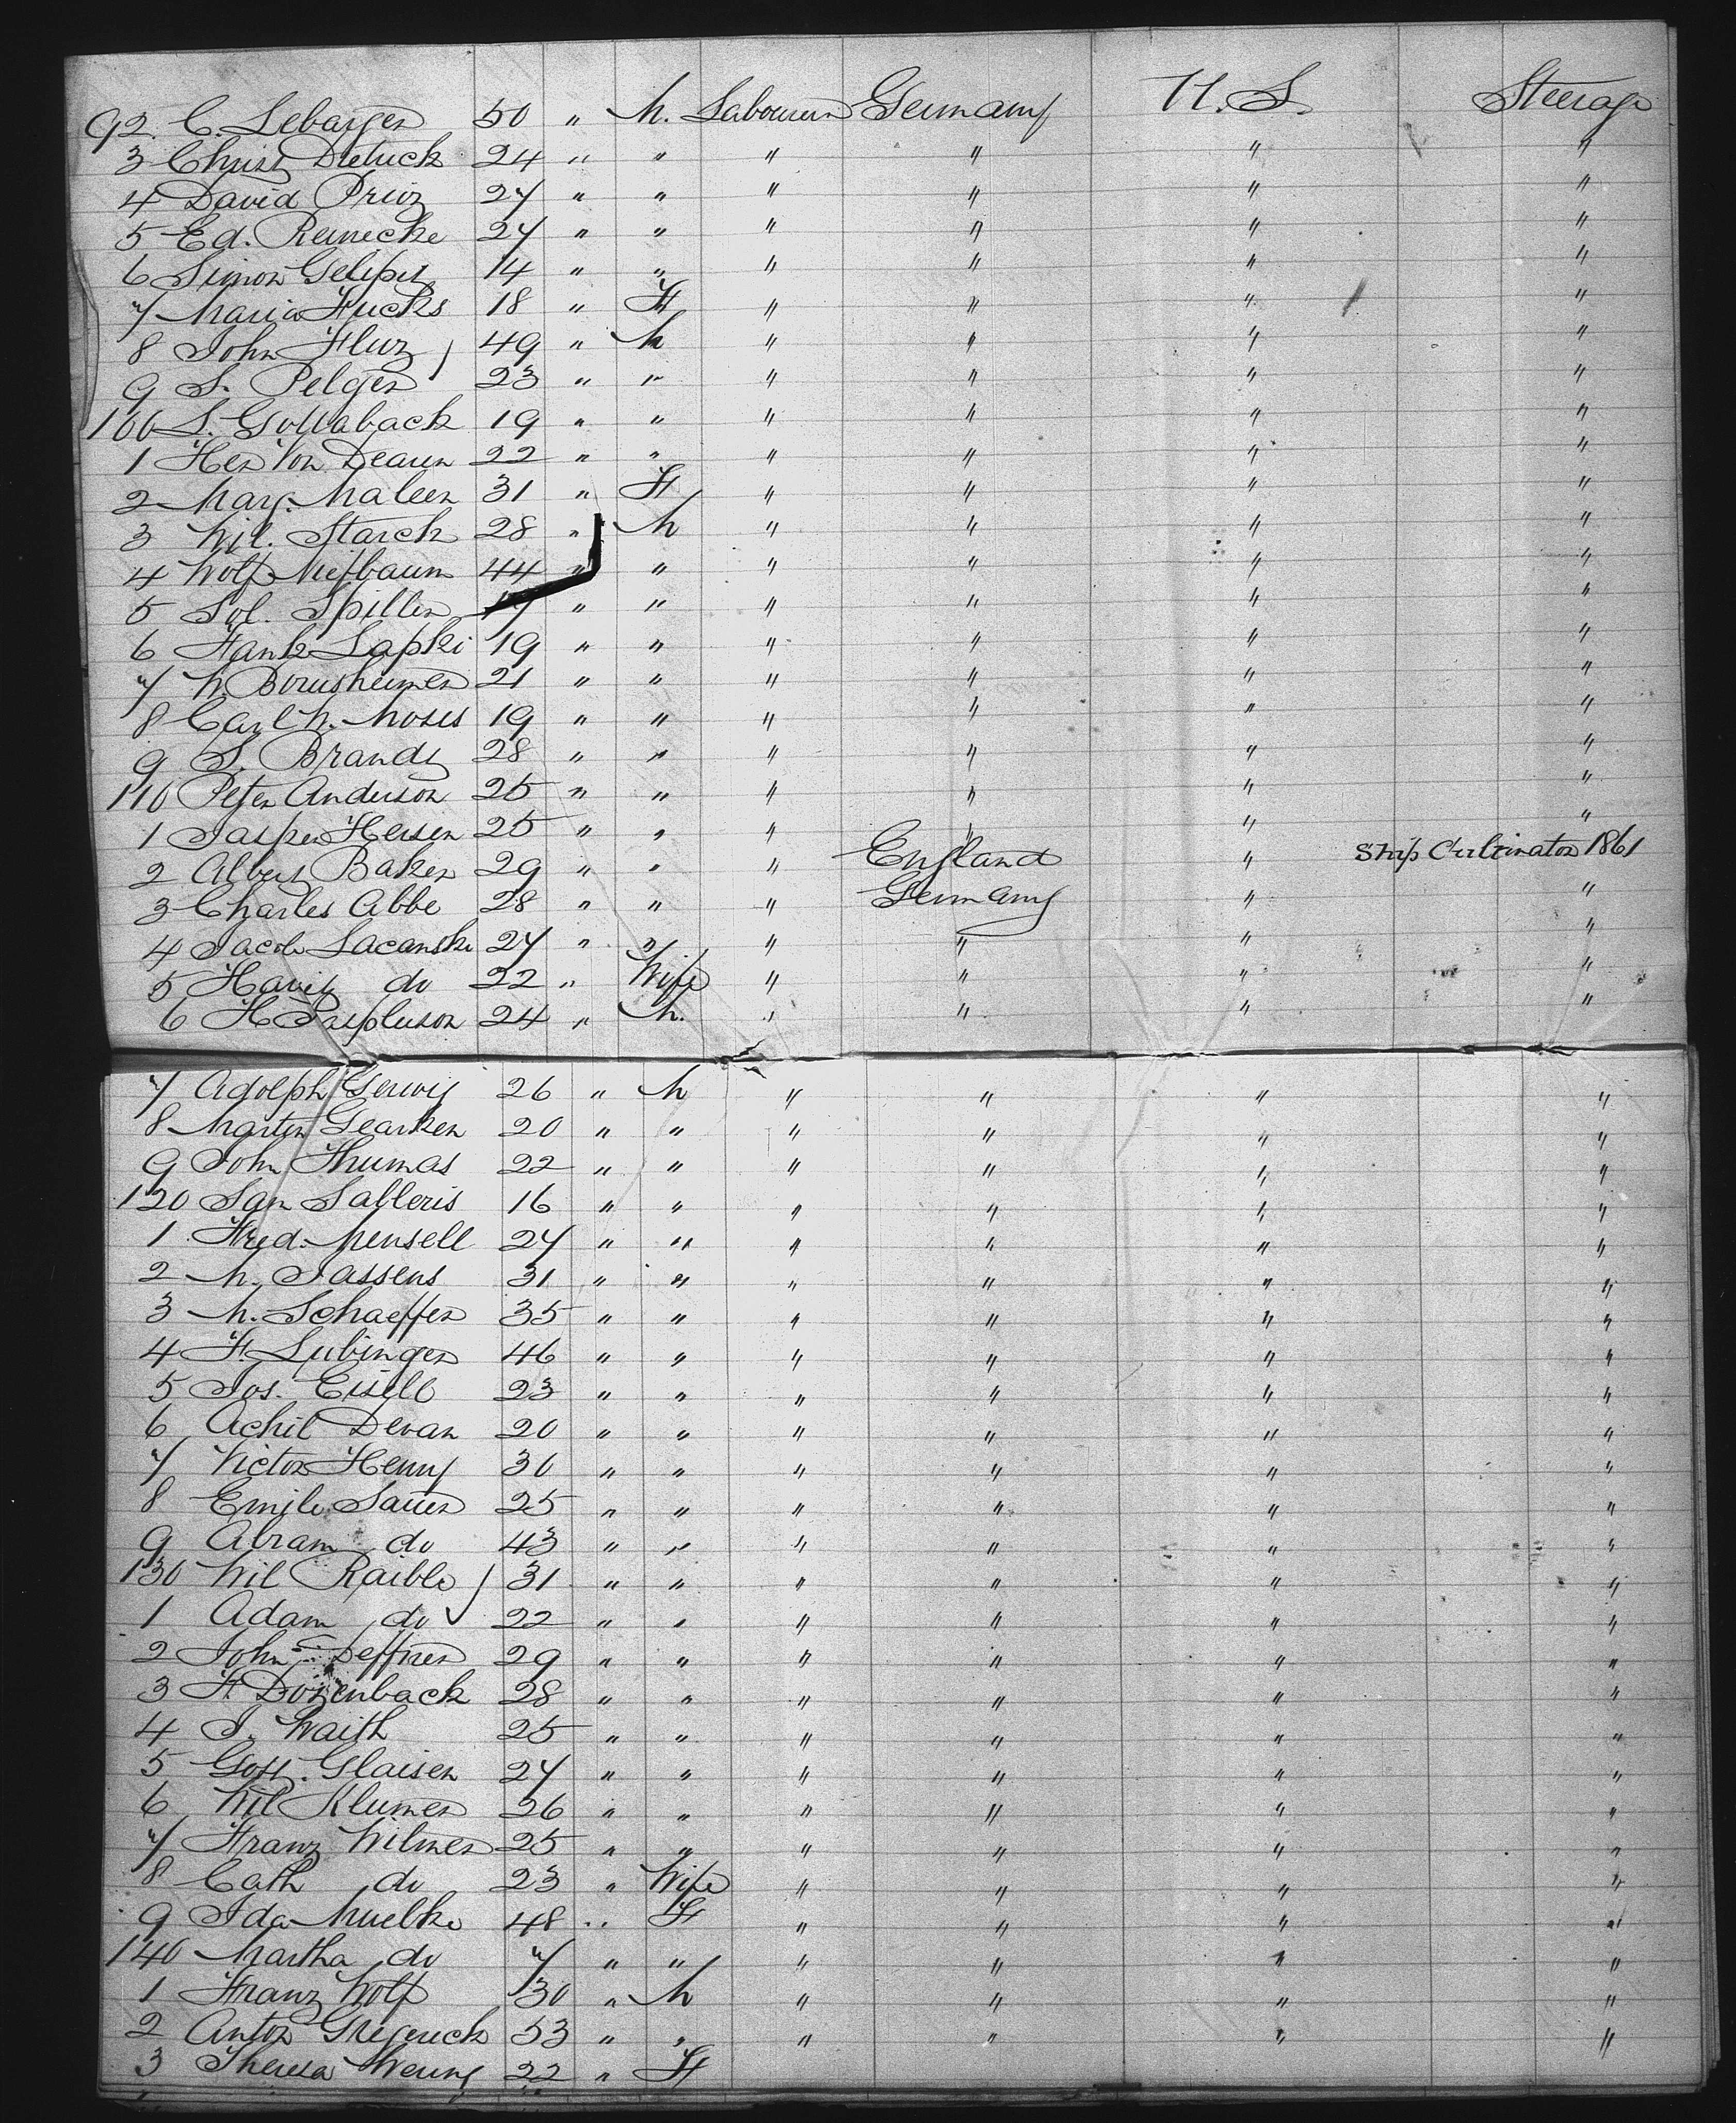 92. C. Lebarger 50 " M. Labourer Germany U. S. Steerage
3 Christ Dietrick 24 " " " " " "
4 David Prinz 27 " " " " " "
5 Ed. Reinecke 27 " " " " " "
6 Simon 14 " " " " " "
7 Maria Fucks 18 " F " " " "
8 John Flur 49 " M " " " "
9 S. Pelger 23 " " " " " "
100 S. Gottaback 19 " " " " " "
1 Her Von Dearen 22 " " " " " "
2 Mary Maleer 31 " F " " " "
3 Wil. Starck 28 " M " " " "
4 Wolf Niefbaum 44 " " " " " "
5 Sol. Spiller " " " " " "
6 Frank Lapki 19 " " " " " "
7 21 " " " " " "
8 Carl M. Moses 19 " " " " " "
9 S. Brandt 28 " " " " " "
110 Peter Anderson 25 " " " " " "
1 Jasper Hersen 25 " " " " " "
2 Albert Baker 29 " " " England " Ship Cultivator 1861
3 Charles Abbe 28 " " " Germany " "
4 Jacob Lacanski 27 " " " " " "
5 do 22 " Wife " " " "
6 24 " M. " " " "
7 Adolph Gerwig 26 " M " " " "
8 Marten Gearken 20 " " " " " "
9 John Thumas 22 " " " " " "
120 Sam Salleris 16 " " " " " "
1 Fred. Mensell 27 " " " " " "
2 M. Jassens 31 " " " " " "
3 M. Schaeffer 35 " " " " " "
4 F. Lubinger 46 " " " " " "
5 Jos. Eisele 23 " " " " " "
6 Achil Devan 20 " " " " " "
7 Victor Henry 30 " " " " " "
8 Emile Sauer 25 " " " " " "
9 Abram do 43 " " " " " "
130 Wil Raible 31 " " " " " "
1 Adam do 22 " " " " " "
2 John Deffner 29 " " " " " "
3 F. Dozenback 28 " " " " " "
4 J. Waith 25 " " " " " "
5 Gott. Glaiser 27 " " " " " "
6 Wil Klumer 26 " " " " " "
7 Franz Wilmer 25 " " " " " "
8 Cath do 23 " Wife " " " "
9 Ida Muelke 48 " F " " " "
140 Martha do 7 " " " " " "
1 Franz Wolf 30 " M " " " "
2 Anton Gregerick 53 " " " " " "
3 Theresa 22 " F